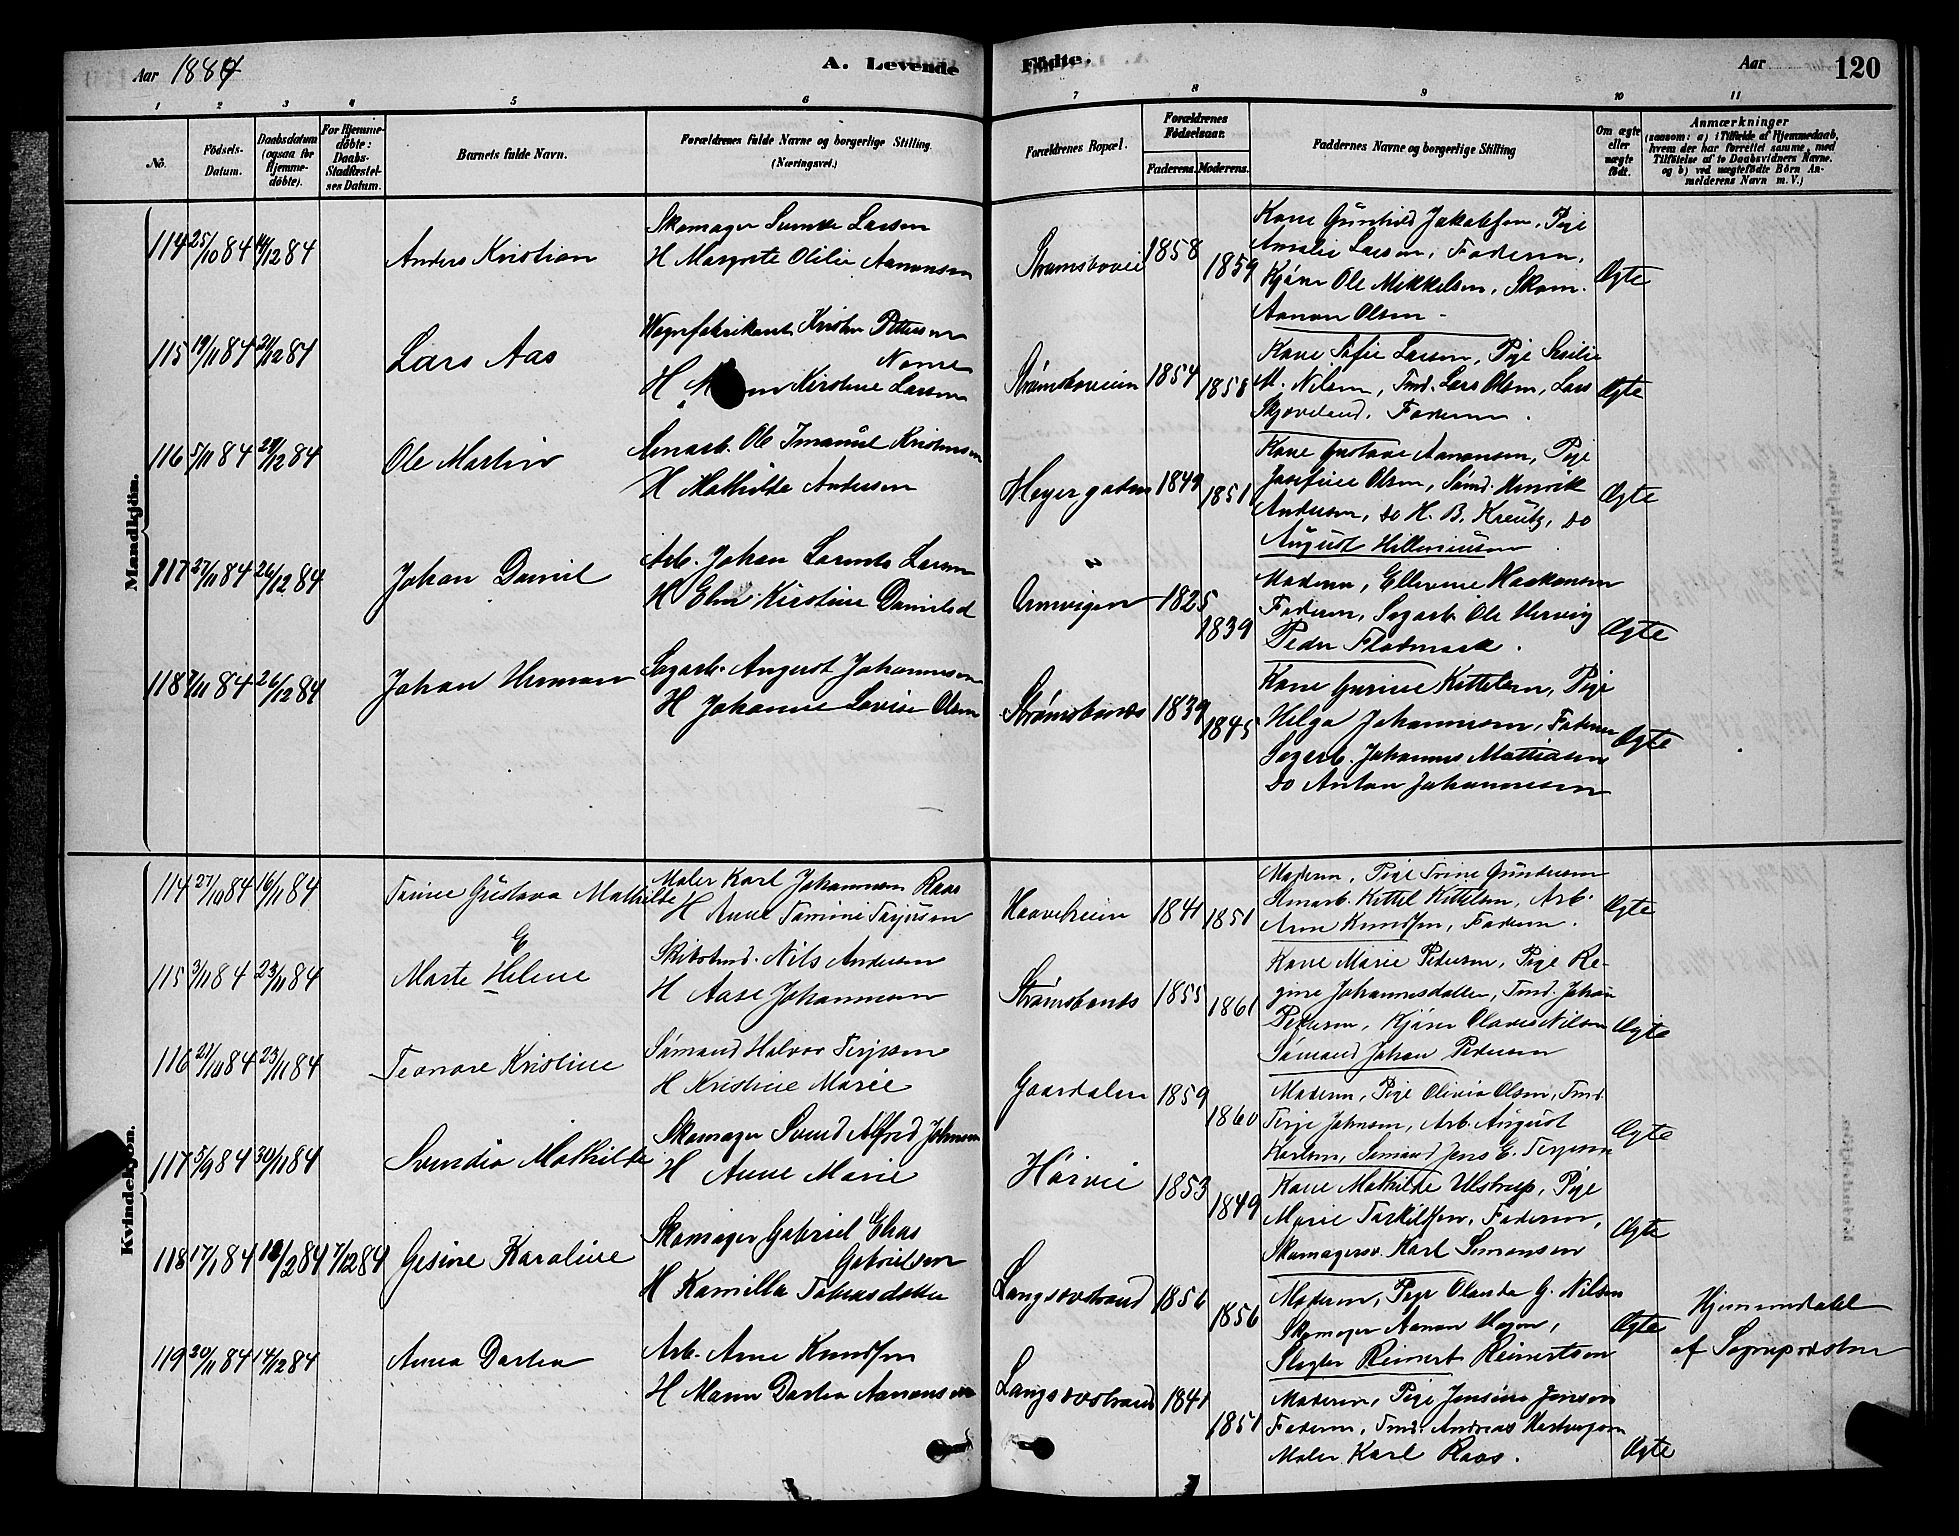 Aar 1884
A. Levende
Födte.
Aar
120
1 2 3 4 5 6 7 8 9 10 11
No.
Födsels-Datum.
Daabsdatum (ogsaa for Hjemme-döbte).
For Hjemme-döbte: Daabs-Stadfæstel-ses Datum.
Barnets fulde Navn.
Forældrenes fulde Navne og borgerlige Stilling. (Næringsvei.)
Forældrenes Bopæl.
Forældrenes Födselsaar.
Faderens. Moderens.
Faddernes Navne og borgerlige Stilling
Om ægte eller uægte födt.
Anmærkninger
(saasom: a) i Tilfælde af Hjemmedaab, hvem der har forrettet samme, med Tilföielse af to Daabsvidners Navne, og b) ved uægtefödte Börn An-melderens Navn m. V.)
Mandkjön.
114 25/10 84 14/12 84 Anders Kristian
Skomager Larsen
H Margrete Otilie Aanonsen
1858 1859
Kone Gunhild Jakobsen, Pige
Amalie Larsen, Faderen,
Ole Mikkelsen, Skom.
Aanon Olsen
Ægte
115 19/11 84 21/12 84 Lars Aas
Vognfabrikant Kristen Pettersen
H Kirstine Larsen
Strømsboveien 1854 1858
Kone Sofie Larsen, Pige Sesilie
M. Nilsen, Tmd. Lars Olsen, Lars
Faderen.
Ægte
116 5/11 84 28/12 84 Ole Martin
Ole Imanuel Kristensen
H Mathilde Andersen
Heyergaden 1849 1851
Kone Gustave Aanonsen, Pige
Josefine Olsen, Sömd. Henrik
Andersen, do H. B. Kreutz, do
August
Ægte
117 27/11 84 26/12 84 Johan Daniel
Arb. Johan Larsen
H Elen Kirstine Danielsd
Arnevigen 1825 1839
Moderen, Ellevine Haakensen
Faderen, Sagarb. Ole
Peder Flodmark.
Ægte
118 7/11 84 26/12 84 Johan Herman
Sagarb. August Johannesen
H Johanne Lovise Olsen
Strømsbunes 1839 1845
Kone Gurine Kittelsen, Pige
Helga Johannesen, Faderen
Sagarb. Johannes Mattiasen
do Anton Johannesen
Ægte
Kvindekjön.
114 27/10 84 16/11 84 Trine Gustava Mathilde
Maler Karl Johannesen Raas
H Anne Tomine Terjesen
1841 1851
Moderen, Pige Trine Gundersen
Kittel Kittelsen, Arb.
Arne Knudsen, Faderen.
Ægte
115 3/11 84 23/11 84 Marte E Helene
Nils Andersen
H Aase Johannesen
1855 1861
Kone Marie Pedersen, Pige Re-
gine Johannesdatter, Tmd. Johan
Pedersen, Olaves Nilsen
Sömand Johan Pedersen
Ægte
116 21/10 84 23/11 84 Teonore Kristine
Sömand Halvor Terjesen
H Kristine Marie
Gaardalen 1859 1860
Moderen, Pige Olivia Olsen, Tmd.
Terje Johnsen, Arb. August
Karlsen, Sömand Jens E. Terjesen
Ægte
117 5/9 84 30/11 84 Svendia Mathilde
Skomager Svend Alfred Johnsen
H Anne Marie
1853 1849
Kone Mathilde Ulstrup, Pige
Marie Torkildsen, Faderen,
Skomagersv. Karl Simonsen
Ægte
118 17/1 84 18/2 84 7/12 84 Gesine Karoline
Skomager Gabriel Elias
Gabrielsen
H Kamilla Tobiasdatter
Langsævstrand 1856 1856
Moderen, Pige Olanda G. Nilsen
Skomager Aanon
Slagter Reinert Reinertsen
Ægte
Hjemmedøbt
af
119 20/11 84 14/12 84 Anna Dortea
Arb. Arne Knudsen
H Maren Dortea Aanonsen
Langsævstrand 1841 1851
Moderen, Pige Jensine Jensen
Faderen, Tmd. Andreas
Maler Karl Raas.
Ægte